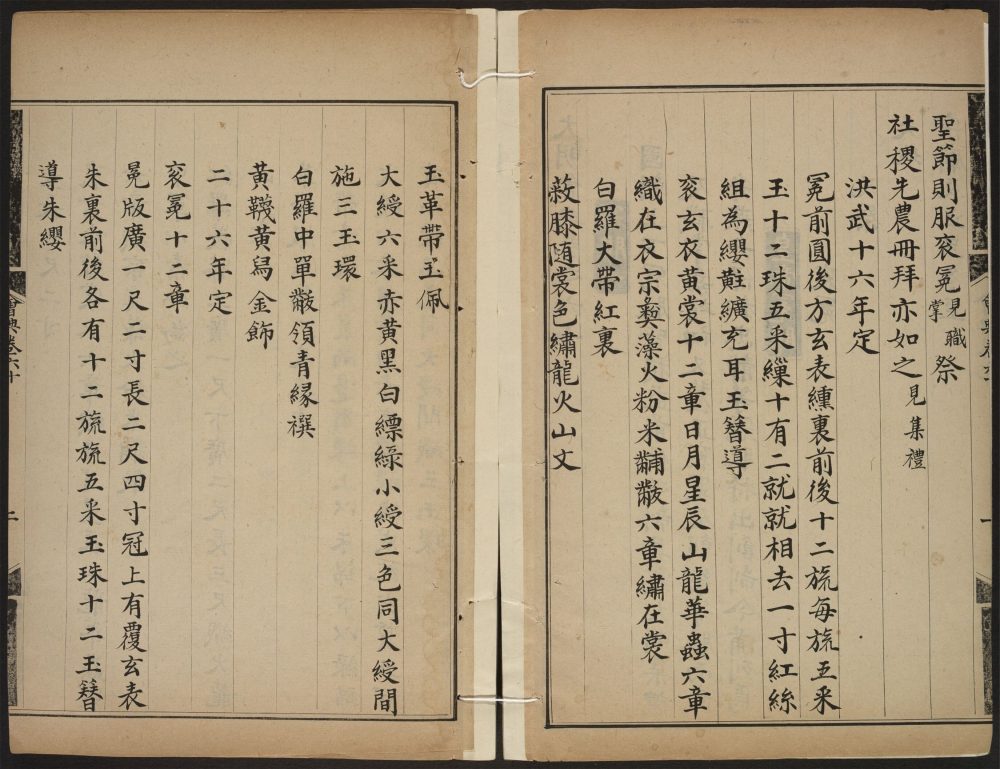 聖節則服衮冕見職掌祭
社稷先農冊拜亦如之見集禮
洪武十六年定
冕前圓後方玄表纁裏前後十二旒每旒五采
玉十二珠五采繅十有二就就相去一寸紅絲
組為纓黈纊充耳玉簪導
衮玄衣黄裳十二章日月星辰山龍華蟲六章
織在衣宗彝藻火粉米黼黻六章繡在裳
白羅大帶紅裏
蔽膝随裳色繡龍火山文
玉革帶玉佩
大綬六采赤黄黑白縹緑小綬三色同大綬間
施三玉環
白羅中單黻領青縁襈
黄韈黄舄金飾
二十六年定
衮冕十二章
冕版廣一尺二寸長二尺四寸冠上有覆玄表
朱裏前後各有十二旒旒五采玉珠十二玉簪
導朱纓
會典卷六十
二